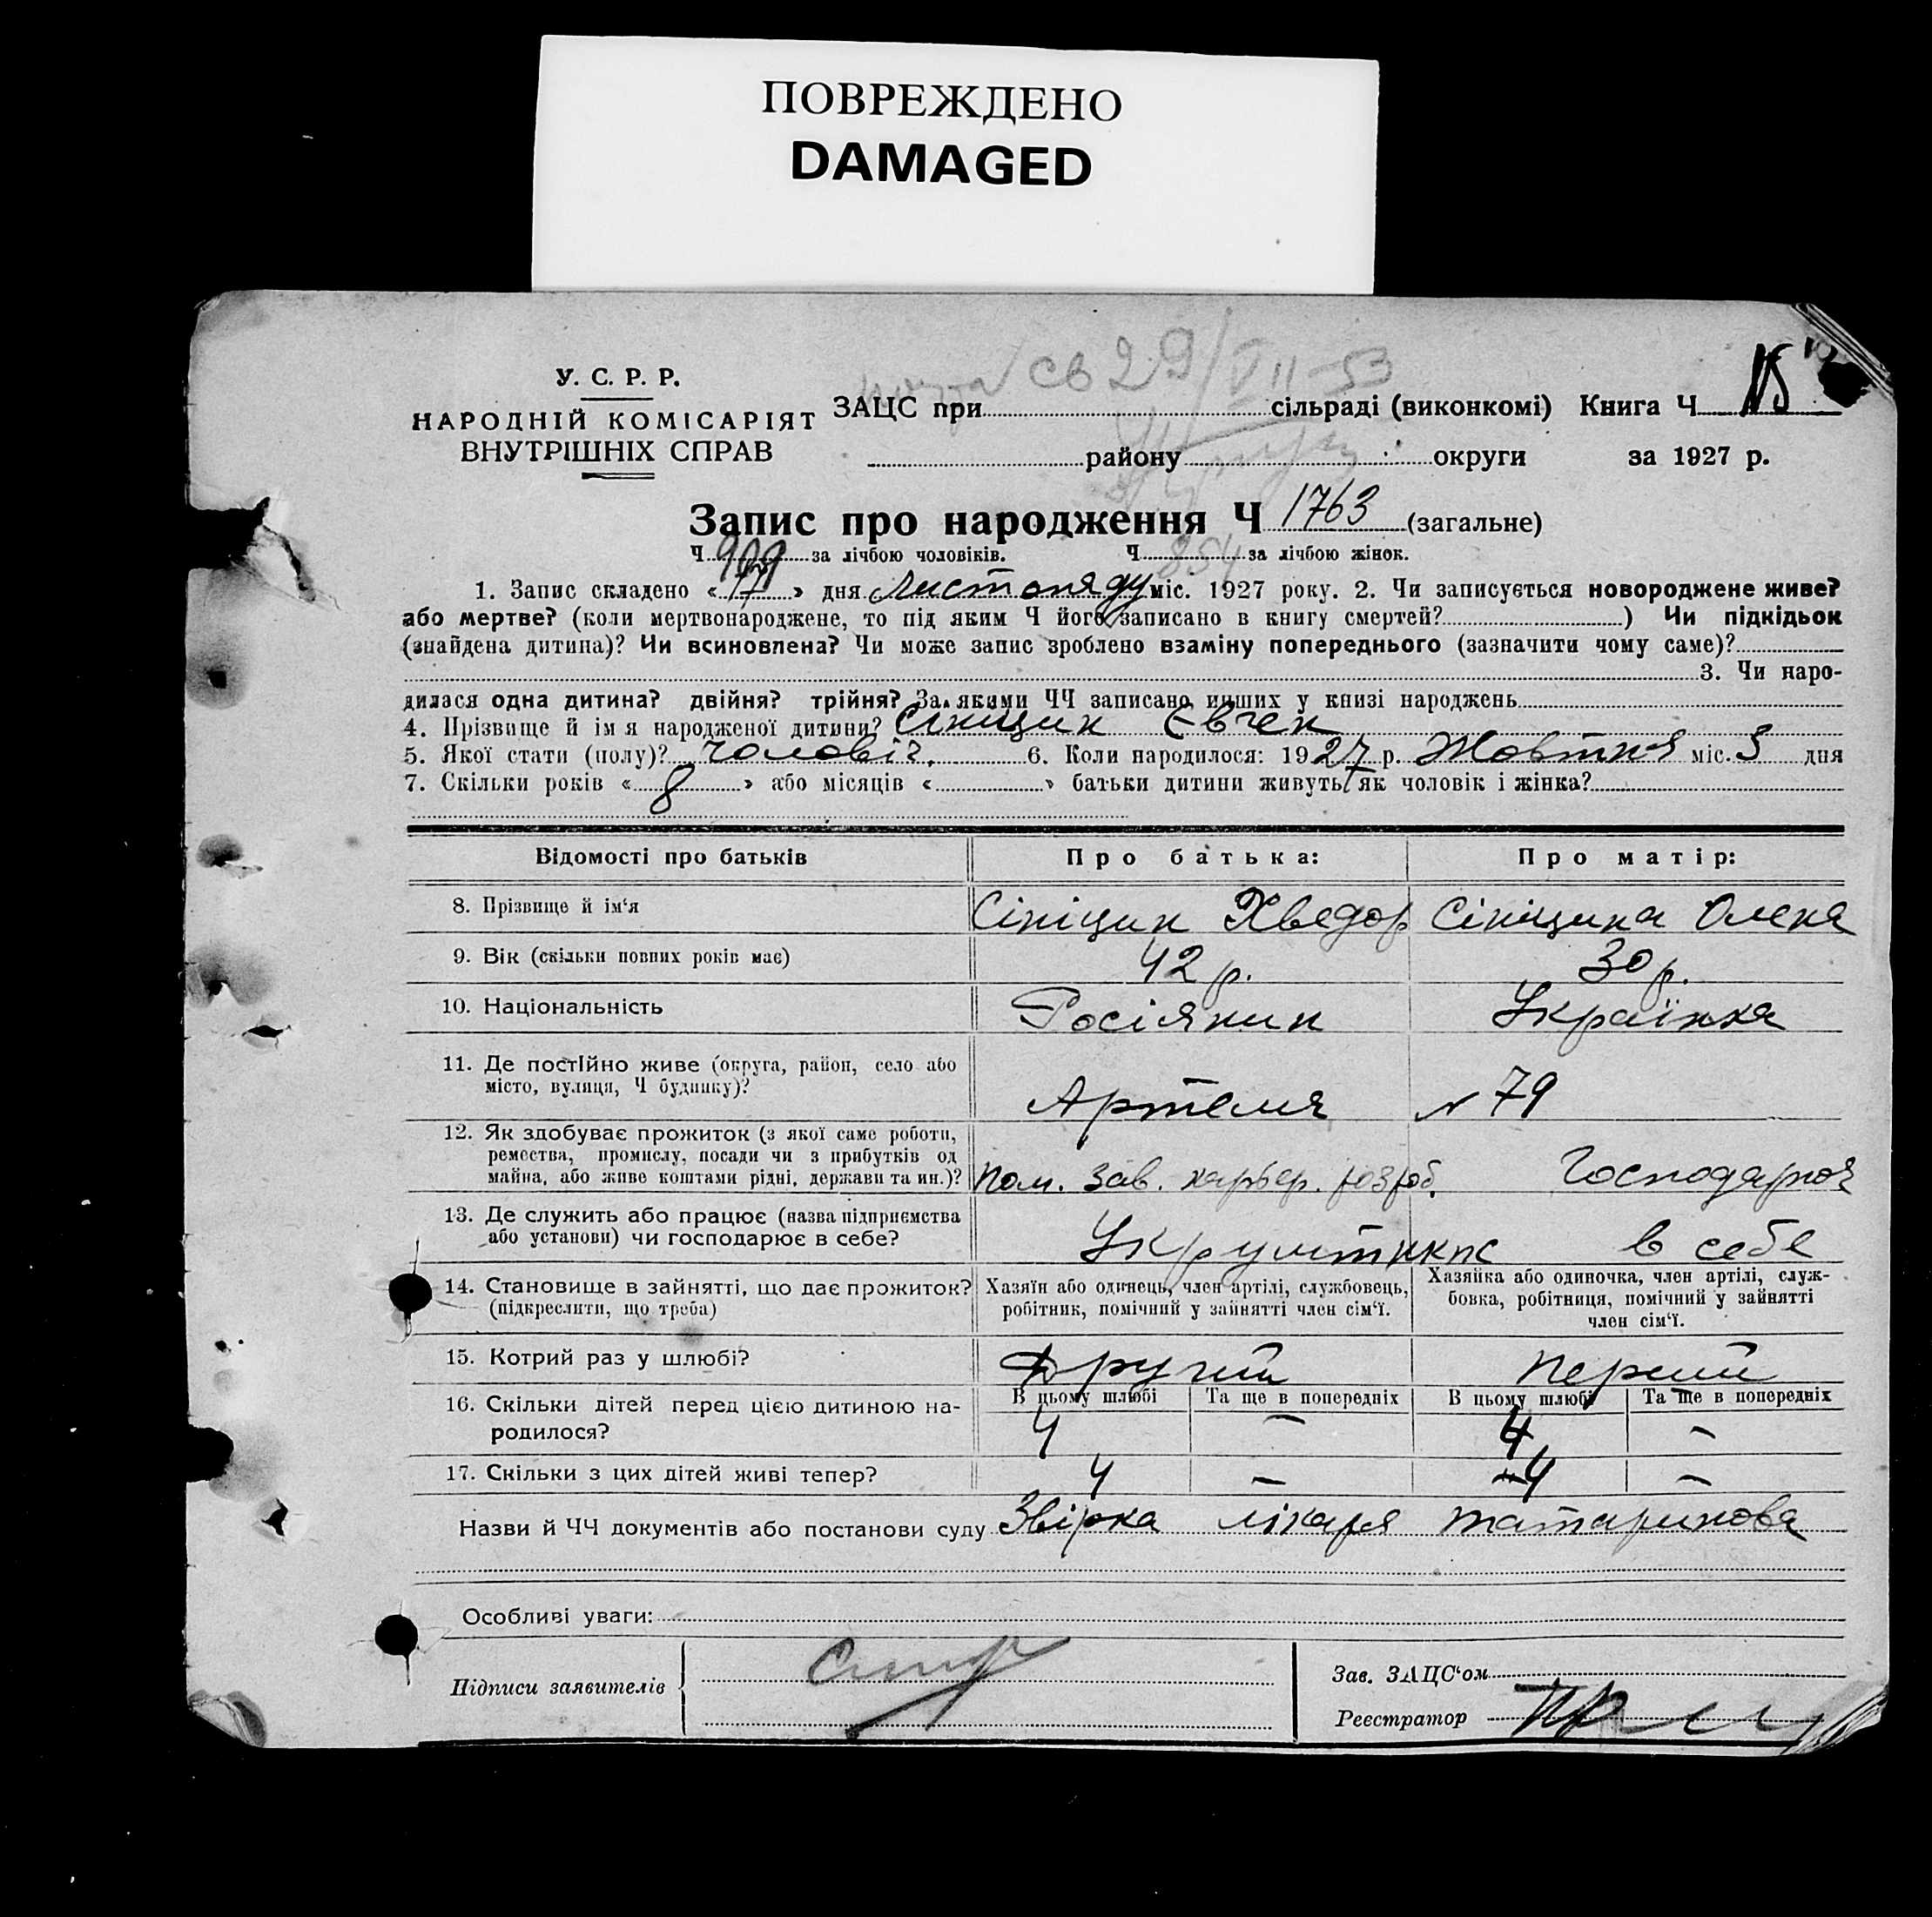 ПОВРЕЖДЕНО
DAMAGED
св 29/VII-53
У. С. Р. Р.
НАРОДНІЙ КОМІСАРІЯТ
ВНУТРІШНІХ СПРАВ
ЗАЦС при сільраді (виконкомі) Книга Ч
району округи за 1927 р.
Запис про народження Ч 1763 (загальне)
Ч 909 за лічбою чоловіків. Ч 854 за лічбою жінок.
1. Запис складено « 17 » дня Листопаду міс. 1927 року. 2. Чи записується новороджене живе?
або мертве? (коли мертвонароджене, то під яким Ч його записано в книгу смертей? ) Чи підкідьок
(знайдена дитина)? Чи всиновлена? Чи може запис зроблено взаміну попереднього (зазначити чому саме)?
3. Чи наро-
дилася одна дитина? двійня? трійня? За якими ЧЧ записано инших у книзі народжень
4. Прізвище й ім я народженої дитини? Сініцин Євген
5. Якої стати (полу)? чоловіч. 6. Коли народилося: 1927 р. Жовтня міс. 3 дня
7. Скільки років « 8 » або місяців « » батьки дитини живуть як чоловік і жінка?
Відомості про батьків Про батька: Про матір:
8. Прізвище й ім'я Сініцин Хведор Сініцина Олена
9. Вік (скільки повних років має) 42 р. 30 р.
10. Національність Росіянин Українка
11. Де постійно живе (округа, район, село або
місто, вулиця, Ч будинку)? Артема N 79
12. Як здобуває прожиток (з якої саме роботи,
ремества, промислу, посади чи з прибутків од
майна, або живе коштами рідні, держави та ин.)? Пом. зав. карьер. розроб. Господарює
13. Де служить або працює (назва підприємства
або установи) чи господарює в себе? в себе
14. Становище в зайнятті, що дає прожиток?
(підкреслити, що треба)
Хазяїн або одинець, член артілі, службовець,
робітник, помічний у зайнятті член сім'ї.
Хазяйка або одиночка, член артілі, служ-
бовка, робітниця, помічний у зайнятті
член сім'ї.
15. Котрий раз у шлюбі? Другий Перший
В цьому шлюбі Та ще в попередніх В цьому шлюбі Та ще в попередніх
16. Скільки дітей перед цією дитиною на-
родилося? 4 – 4 –
17. Скільки з цих дітей живі тепер? 4 – 4 –
Назви й ЧЧ документів або постанови суду Звірка лікаря Татаринова
Особливі уваги:
Підписи заявителів
Зав. ЗАЦС'ом
Реєстратор